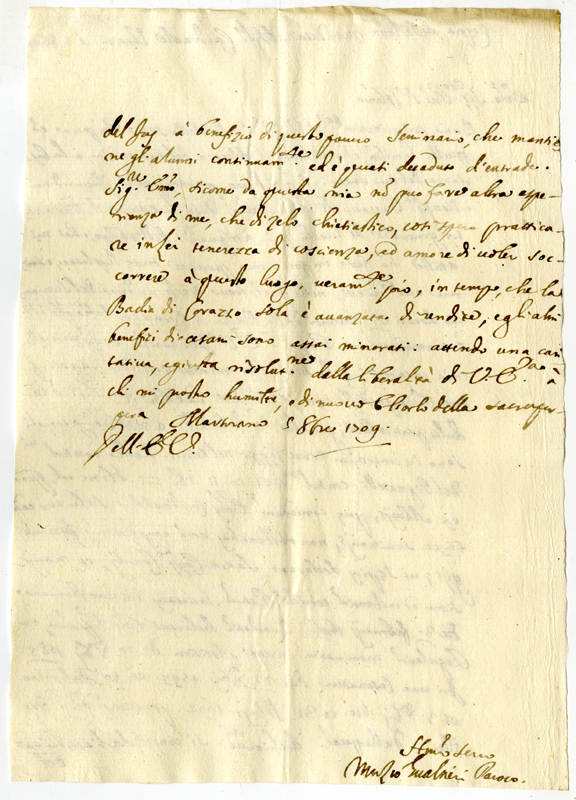 del Jus à benefizio di questo povero Seminario, che mantie
ne gli alumni continuam.te ed è quasi decaduto d'entrade.
Sig.re Em̃o, sicome da questa mia nõ può fare altra spe-
rienza di me, che di zelo chiesiastico, così spero prattica-
re in lei tenerezza di coscienza, ed amore di voler soc-
correre à questo luogo, veram.te pio, in tempo, che la
Badia di Corazzo sola è avanzata di rendite, e gli altri
benefici di cesani sono assai minorati: attendo una cari
tativa, e giusta resolut.ne dalla liberalità di V.E. à
chi mi posto humilte, e di nuovo E horlo della sacra por-
pora Martirano 5 8bre 1709.
Dell'E.V.
Hum̃o Servo
Muzio Gualtieri Paroco.